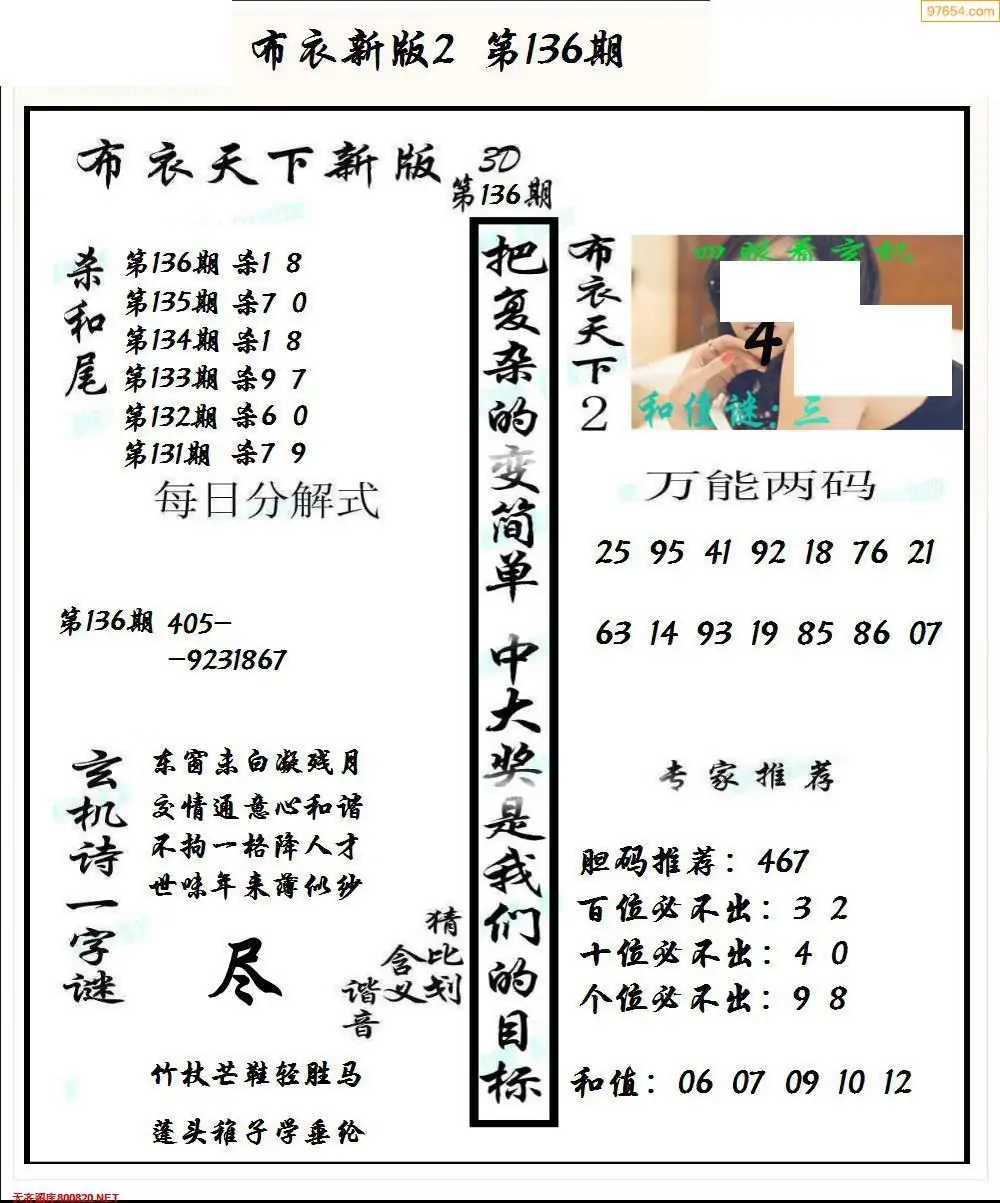 97654.com
布衣新版2 第136期
布衣天下新版
3D
第136期
杀和尾
第136期 杀1 8
第135期 杀7 0
第134期 杀1 8
第133期 杀9 7
第132期 杀6 0
第131期 杀7 9
每日分解式
第136期 405-
-9231867
玄机诗一字谜
东窗未白凝残月
交情通意心和谐
不拘一格降人才
世味年来薄似纱
尽
猜比划
含义
谐音
竹杖芒鞋轻胜马
蓬头稚子学垂纶
把复杂的变简单 中大奖是我们的目标
布衣天下2
四眼看玄机
4
和值谜:三
万能两码
25 95 41 92 18 76 21
63 14 93 19 85 86 07
专家推荐
胆码推荐：467
百位必不出：3 2
十位必不出：4 0
个位必不出：9 8
和值：06 07 09 10 12
天齐图库800820.NET